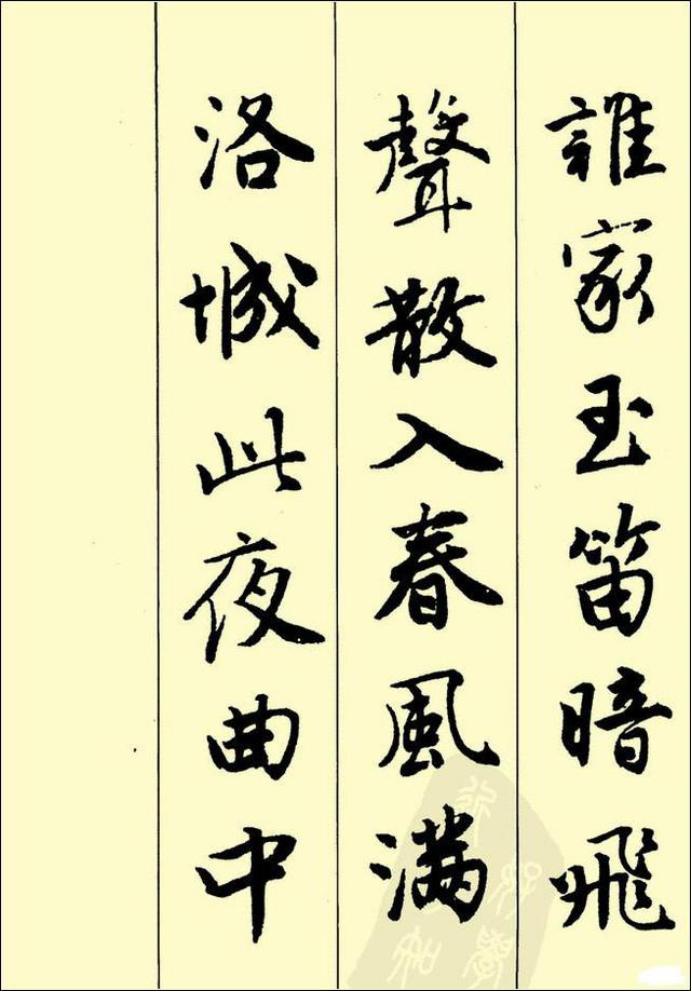 誰家玉笛暗飛
聲散入春風滿
洛城此夜曲中